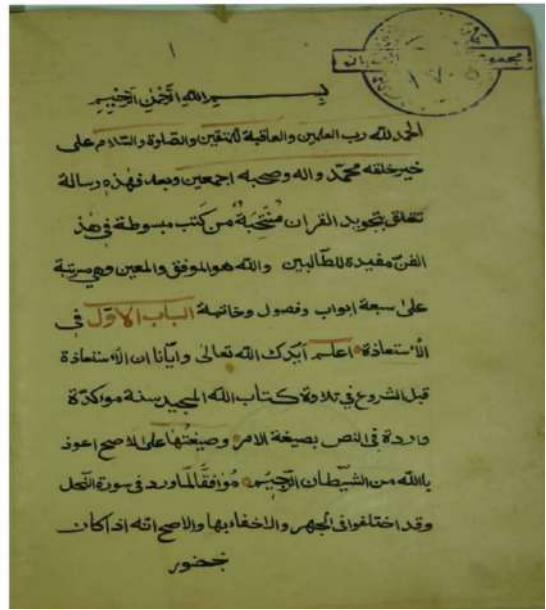 ١
١٧٠٥
بسم الله الرحمن الرحيم
الحمد لله رب العلمين والعاقبة للمتقين والصلوة والسلام على
خير خلقه محمد واله وصحبه اجمعين وبعد فهذه رسالة
تتعلق بتجويد القران منتخبة من كتب مبسوطة في هذ
الفن مفيدة للطالبين والله هو الموفق والمعين وهي مرتبة
على سبعة ابواب وفصول وخاتمة الباب الاول في
الاستعاذة اعلم ايدك الله تعالى وايانا ان الاستعاذة
قبل الشروع في تلاوة كتاب الله المجيد سنة موكدة
واردة في النص بصيغة الامر وصيغتها على الاصح اعوذ
بالله من الشيطان الرجيم مُوافقًا لما ورد في سورة النحل
وقد اختلفوا في الجهر والاخفاء بها والاصح انه اذا كان
بحضور